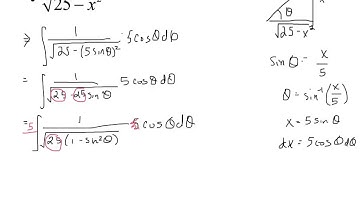 √25 - x²
⇒ ∫ 1/√25 - (5sinθ)² · 5cosθdθ
= ∫ 1/√25 - 25sinθ 5cosθdθ
= 5∫ 1/√25(1 - sin²θ) 5cosθdθ
θ
√25-x²
sinθ = x/5
θ = sin⁻¹(x/5)
x = 5sinθ
dx = 5cosθdθ